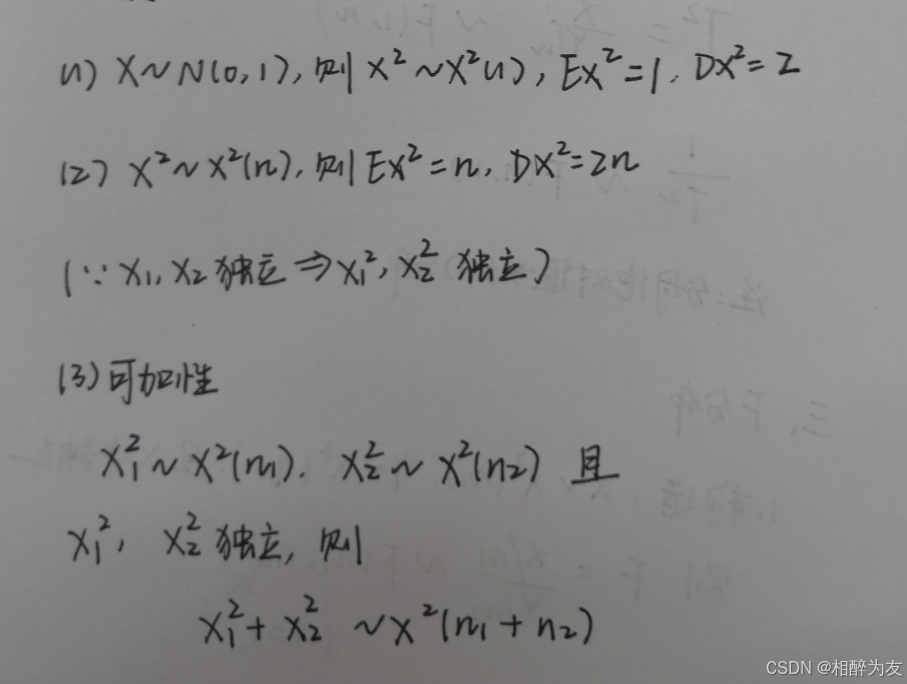 (1) X~N(0,1),则X²~X²(1),EX²=1,DX²=2
(2) X²~X²(n),则EX²=n,DX²=2n
(∵X₁,X₂独立⇒X₁²,X₂²独立)
(3)可加性
X₁²~X²(n₁).X₂²~X²(n₂)且
X₁²,X₂²独立,则
X₁²+X₂²~X²(n₁+n₂)
CSDN @相醉为友